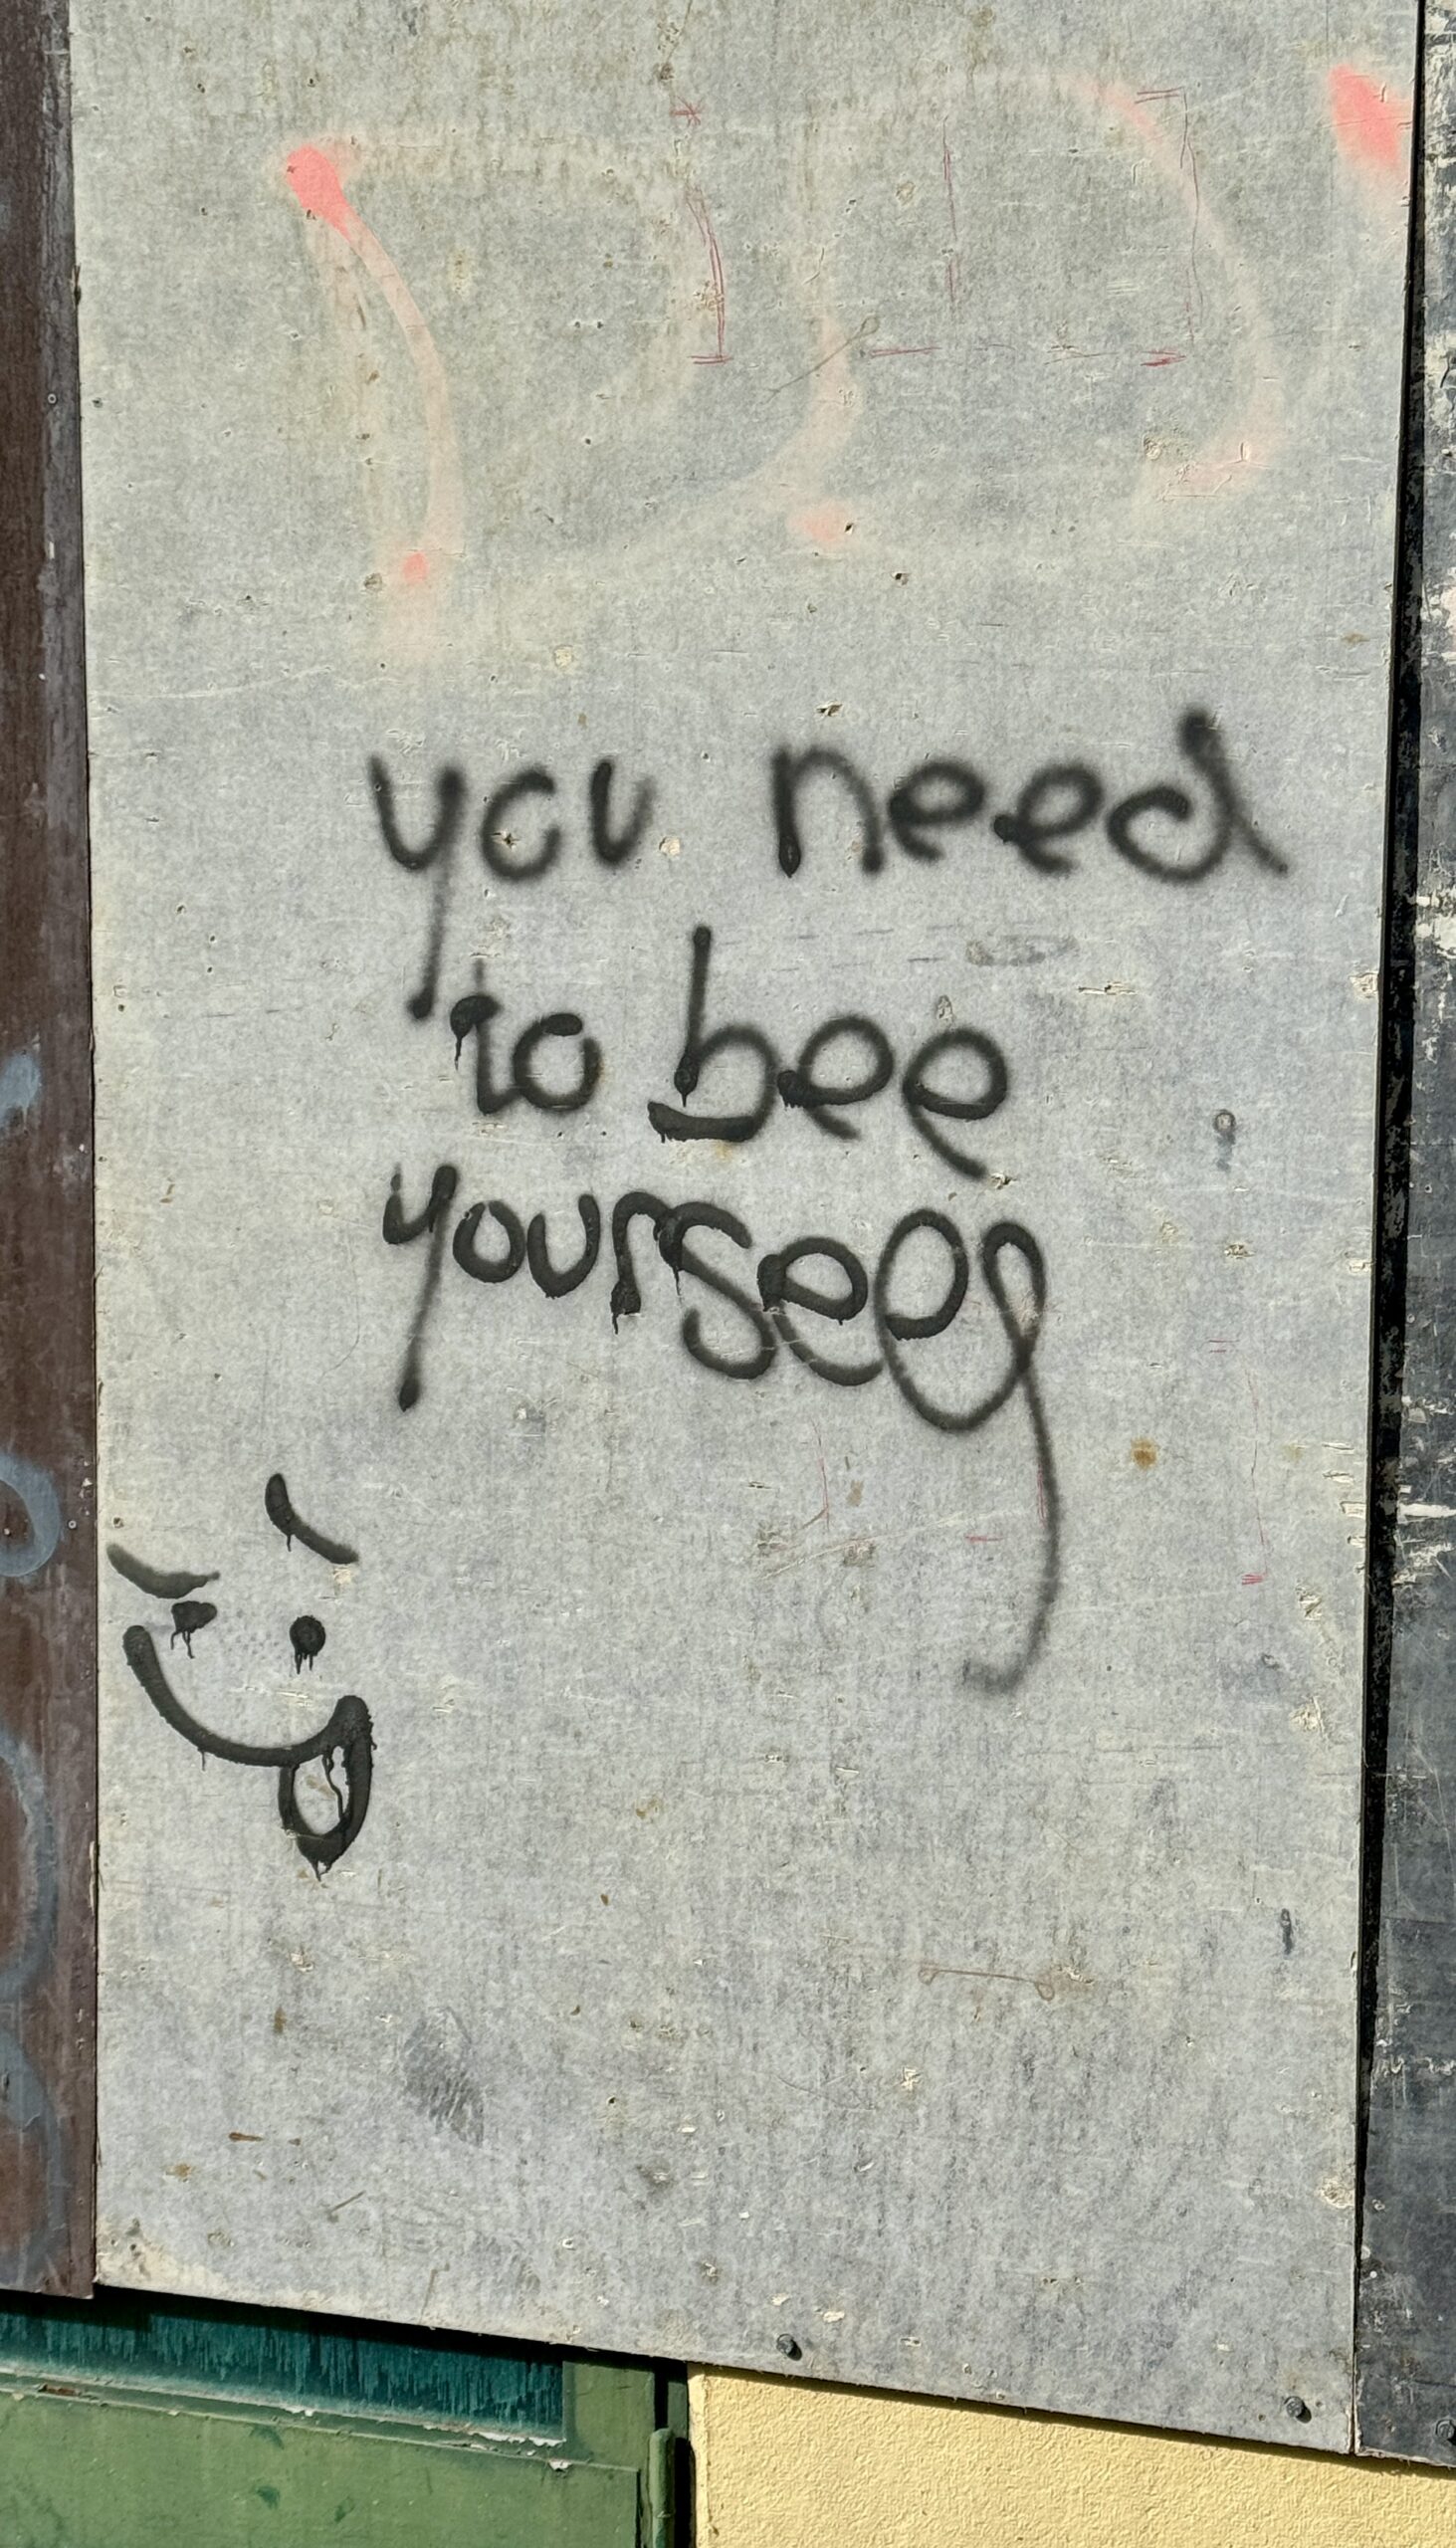 you need
to bee
yourself